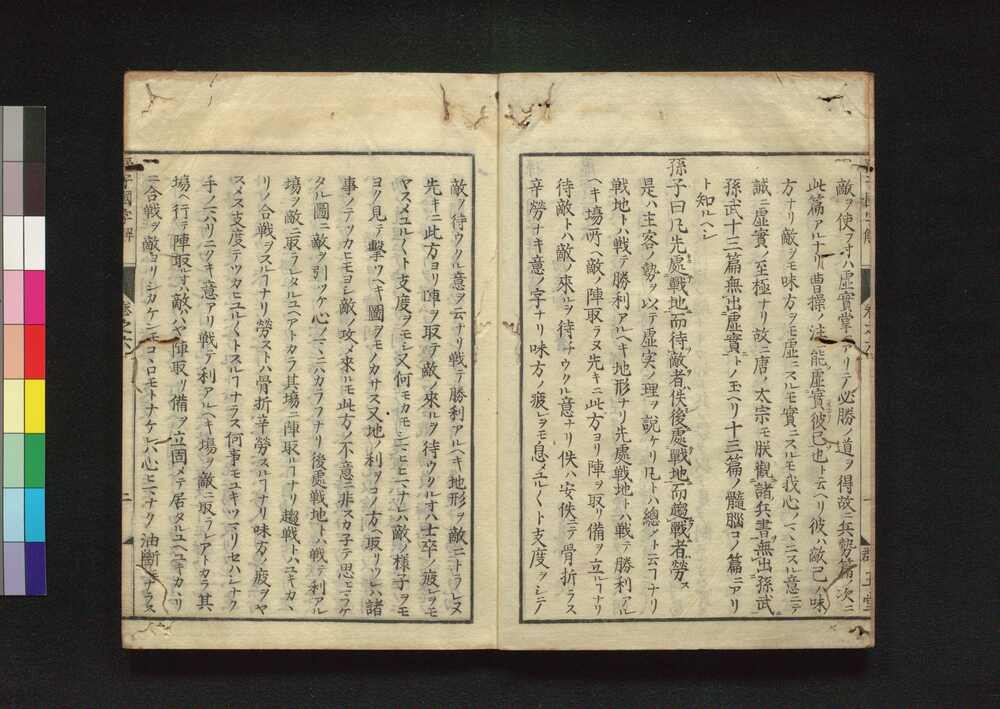 敵ヲ使フヿハ虚實掌ニアリテ必勝ノ道ヲ得故ニ兵勢篇ノ次ニ
此篇アルナリ曹操ノ注ニ能虚實彼己也ト云ヘリ彼ハ敵己ハ味
方ナリ敵ヲモ味方ヲモ虚ニスルモ實ニスルモ我心ノマヽニスル意ニテ
誠ニ虚實ノ至極ナリ故ニ唐ノ太宗モ朕觀諸兵書無出孫武
孫武十三篇無出虚實トノ玉ヘリ十三篇ノ髓脳コノ篇ニアリ
ト知ルヘシ
孫子曰凡先處戰地而待敵者佚後處戰地而趨戰者勞ス
是ハ主客ノ勢ヲ以テ虚実ノ理ヲ説ケリ凡トハ總シテト云フヿナリ
戰地トハ戰テ勝利アルヘキ地形ナリ先處戰地トハ戰テ勝利アル
ヘキ場所ヘ敵ノ陣取ラヌ先キニ此方ヨリ陣ヲ取リ備ヲ立ルヿナリ
待敵トハ敵ノ來ルヲ待チウクル意ナリ佚ハ安佚ニテ骨折ラス
辛勞ナキ意ノ字ナリ味方ノ疲レヲモ息メユルくト支度ヲシテ
敵ヲ待ウクル意ヲ云ナリ戰テ勝利アルヘキ地形ヲ敵ニトラレヌ
先キニ此方ヨリ陣ヲ取テ敵ノ來ルヲ待ウクルヿハ士卒ノ疲レヲモ
ヤスメユルくト支度ヲモシ又何モカモシマヒヒマナレハ敵ノ様子ヲモ
ヨク見テ擊ツヘキ圖ヲモノカサス又地ノ利ヲコノ方ヘ取リヲレハ諸
事ノテツカヒモヨシ敵ノ攻メ來ルモ此方ノ不意ニ非スカ子テ思ヒマフケ
タル圖ニ敵ヲ引ツケ心ノマヽニカラフナリ後處戰地トハ戰テ利アル
場ヲ敵ニ取ラレタルユヘアトカラ其場ニ陣取ルヿナリ趨戰トハユキカヽ
リノ合戰ヲスルヿナリ勞ストハ骨折辛勞スルヿナリ味方ノ疲ヲヤ
スメス支度テツカヒユルくトスルヿナラス何事モユキツマリセハシナク
手ノマハリニクキ意アリ戰テ利アルヘキ場ヲ敵ニ取ラレアトカラ其
場ヘ行テ陣取ルヿハ敵ハハヤ陣取リ備ヲ立固メテ居タルユヘユキカヽリ
ニ合戰ヲ敵ヨリシカケンモコヽロモトナケレハ心ヒマナク油斷モナラス